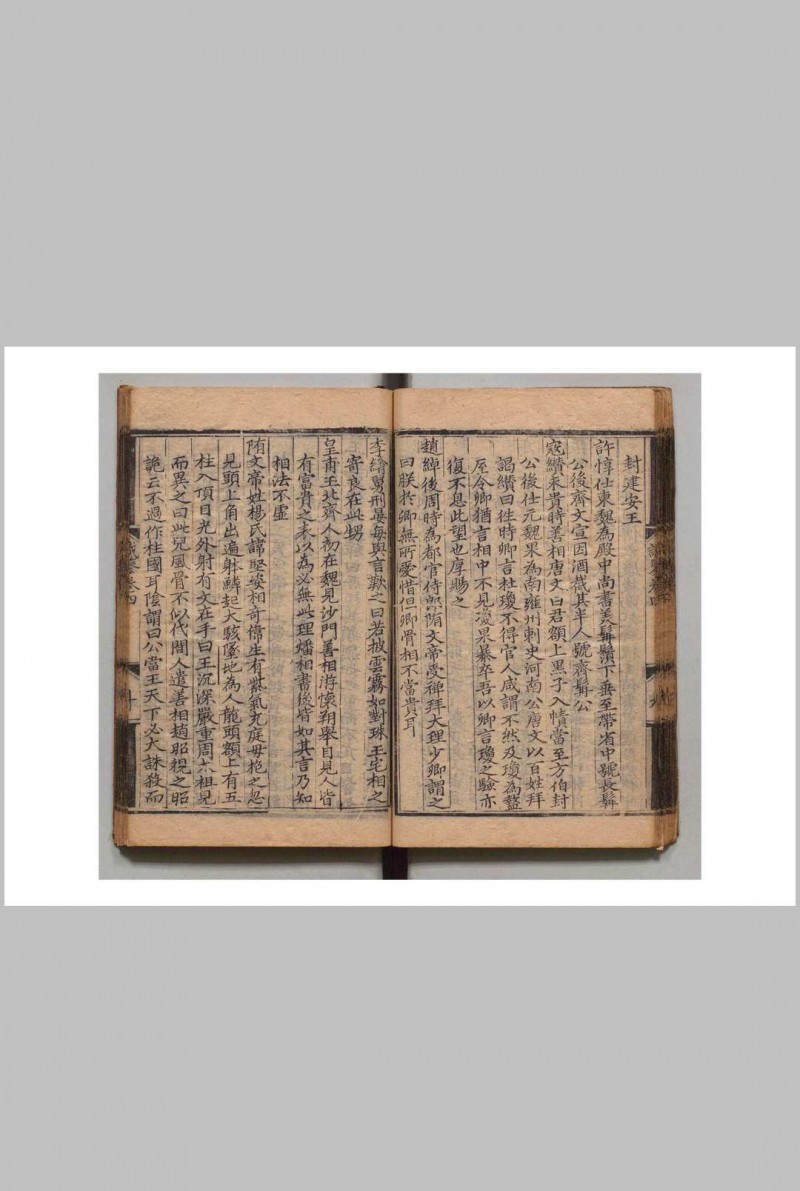 封建安王
許惇仕東魏為殿中尚書美鬚鬢下垂至帶省中號長鬣
公後齊文宣因酒截其半人號齊鬣公
寇纘未貴時善相唐文曰君額上黑子入幘當至方伯封
公後仕元魏果為南雍州刺史河南公唐文以百姓拜
謁纘曰徃時卿言杜瓊不得官人咸謂不然及瓊為盩
厔令卿猶言相中不見瓊果暴卒吾以卿言瓊之驗亦
復不息此望也厚賜之
趙綽後周時為都官侍郎隋文帝受禪拜大理少卿謂之
曰朕於卿無所愛惜但卿骨相不當貴耳
李繪舅邢晏每與言歎之曰若披雲霧如對珠玉宅相之
寄良在此甥
皇甫玉北齊人初在魏見沙門善相游懷朔舉目見人皆
有富貴之表以為必無此理燔相書後皆如其言乃知
相法不虛
隋文帝姓楊氏諱堅姿相奇偉生有紫氣充庭母抱之忽
見頭上角出遍躰鱗起大駭墜地為人龍頭額上有五
柱入頂目光外射有文在手曰王沉深嚴重周太祖見
而異之曰此兒風骨不似代間人遣善相趙昭視之昭
詭云不過作柱國耳陰謂曰公當王天下必大誅殺而